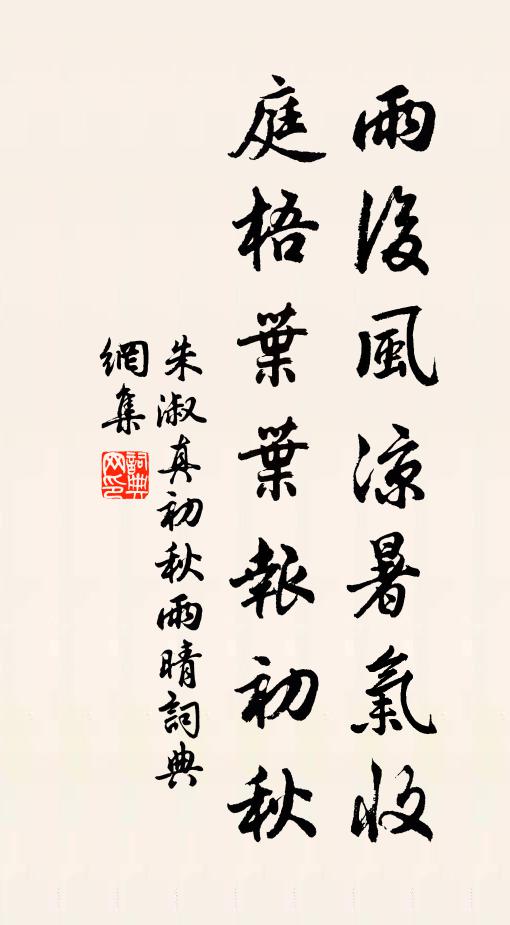 雨後風涼暑氣收
庭梧葉葉報初秋
朱淑真初秋雨晴詞典
網集
詞典網印